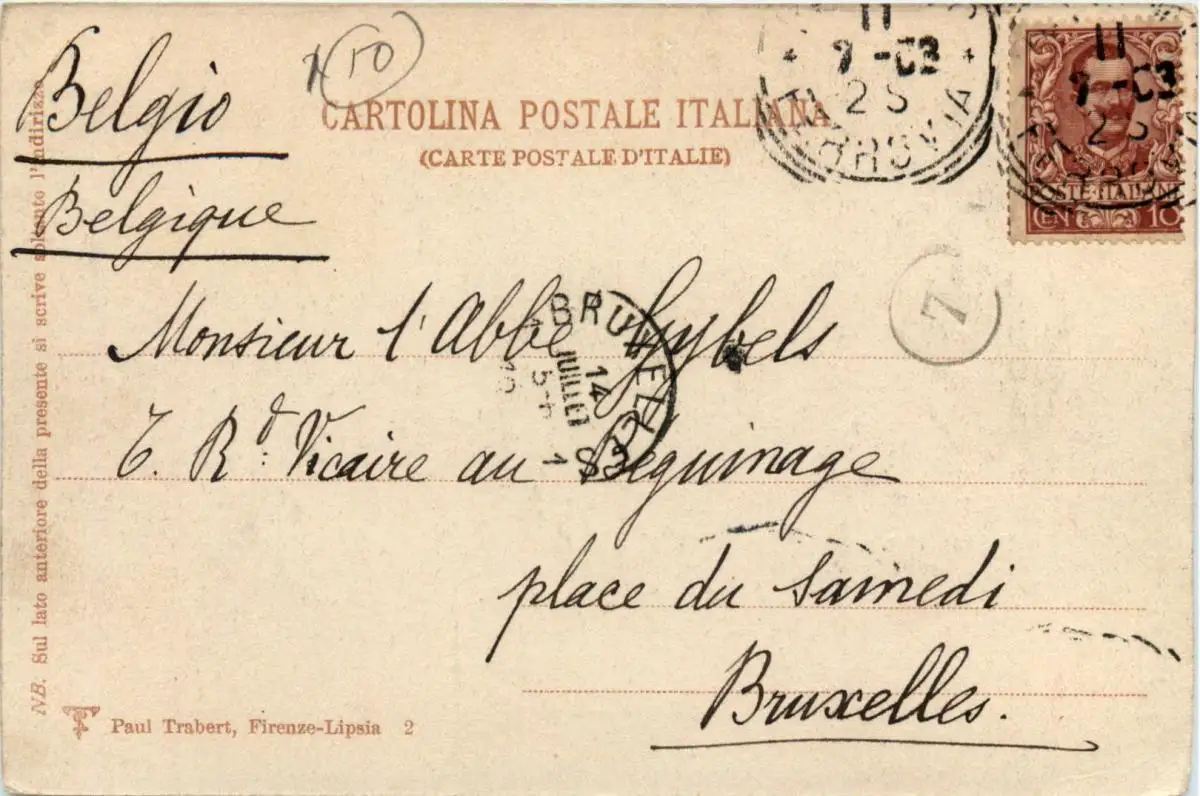 Belgio
Belgique
(10)
CARTOLINA POSTALE ITALIANA
(CARTE POSTALE D'ITALIE)
11
7-03
2 S
FERROVIA
11
7-03
2 S
POSTE·ITALIANE
CEN 10
7
Monsieur l'Abbé Gybels
T. Rd. Vicaire au Béguinage
place du Samedi
Bruxelles.
BRUXELLES
14
JUILLET
NB. Sul lato anteriore della presente si scrive soltanto l'indirizzo
Paul Trabert, Firenze-Lipsia 2